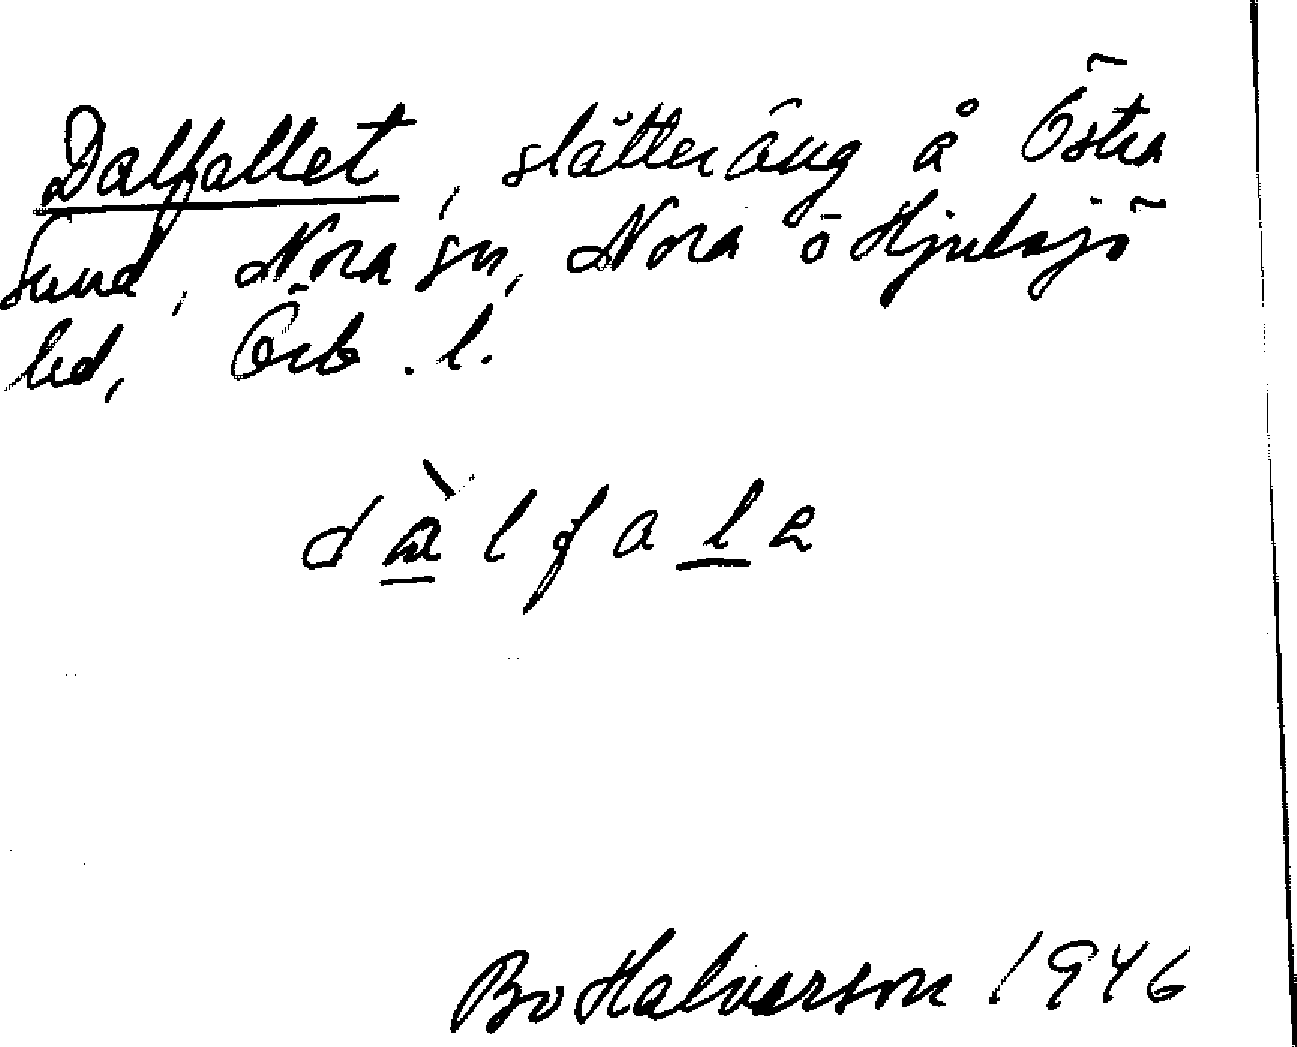 Dalfallet, slåtteräng å Östra
Sund, Nora sn, Nora o Hjulsjö
hd, Örb. l.
dàlfala
Bo Halvarson 1946